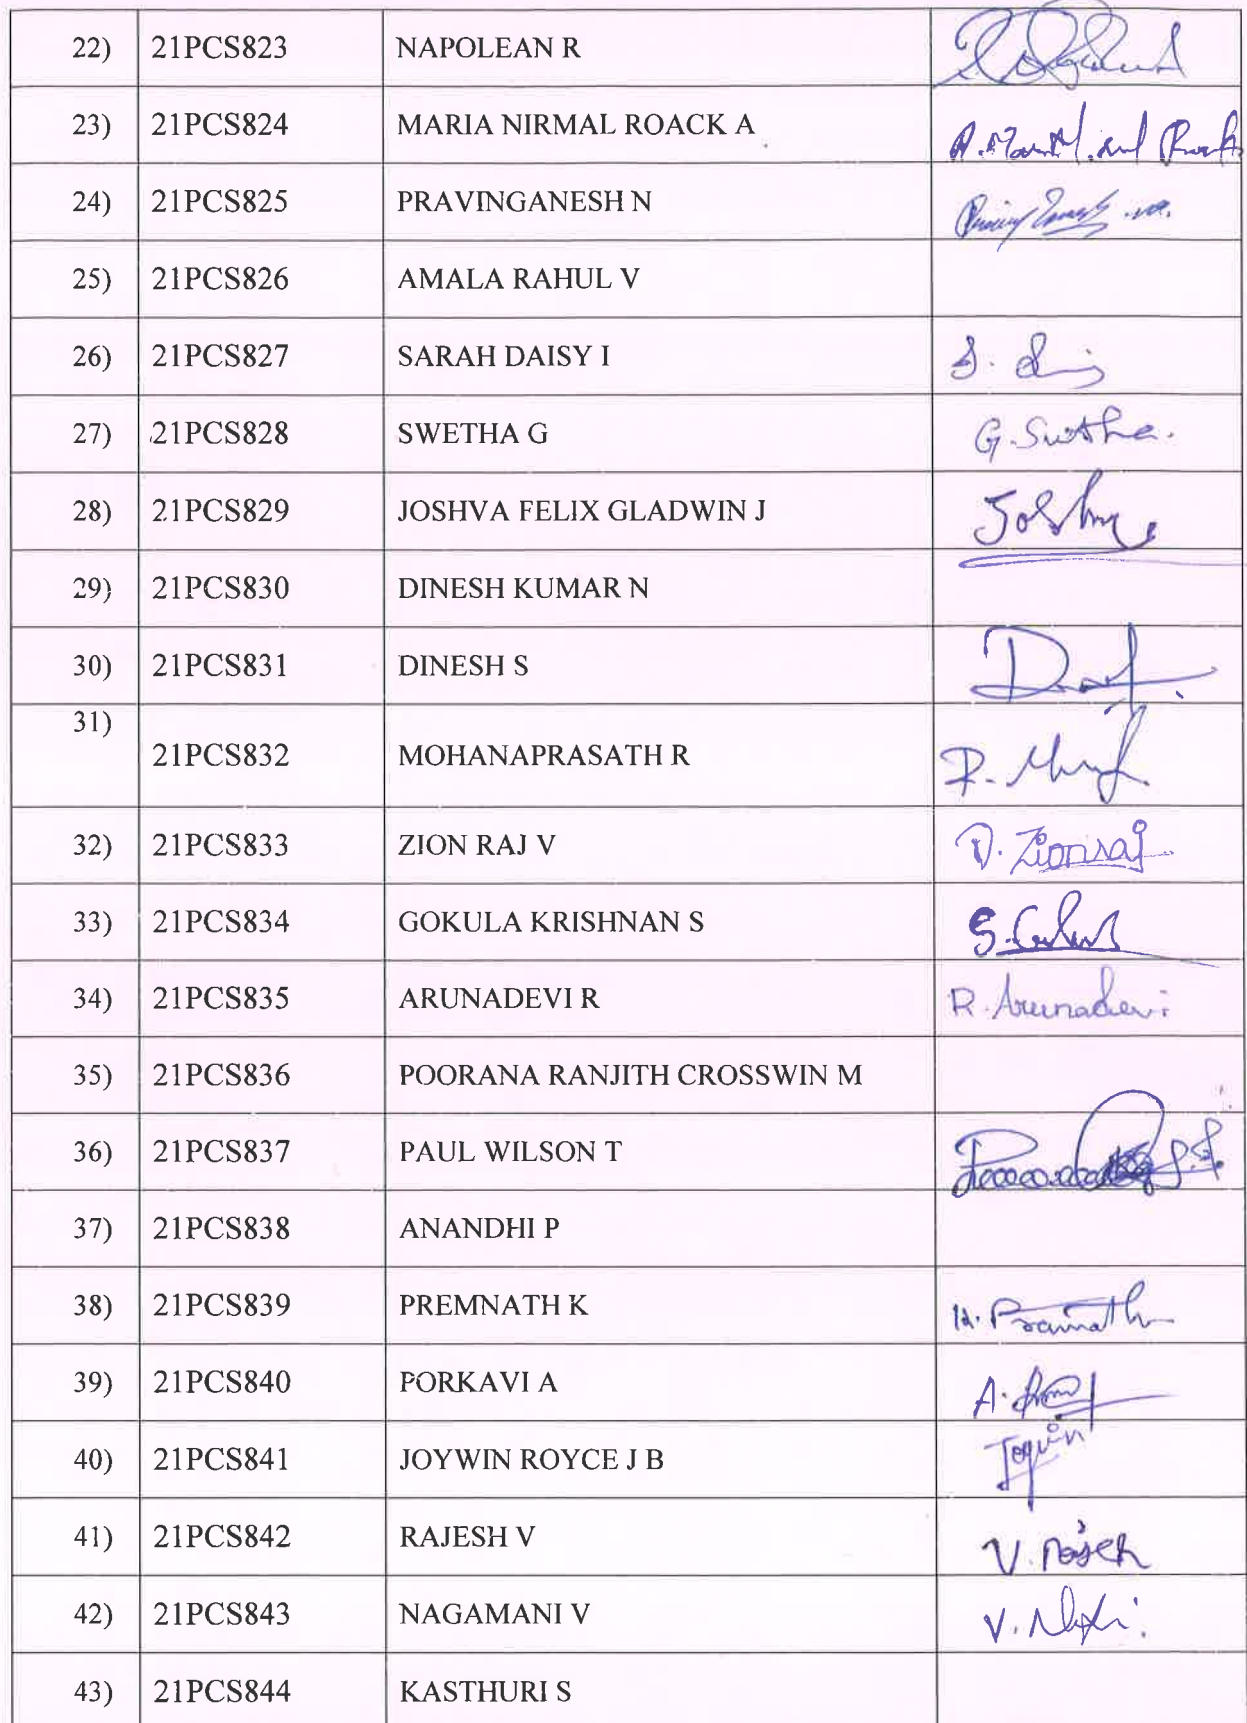 22) 21PCS823 NAPOLEAN R
23) 21PCS824 MARIA NIRMAL ROACK A
24) 21PCS825 PRAVINGANESH N
25) 21PCS826 AMALA RAHUL V
26) 21PCS827 SARAH DAISY I
27) 21PCS828 SWETHA G G. Swetha.
28) 21PCS829 JOSHVA FELIX GLADWIN J
29) 21PCS830 DINESH KUMAR N
30) 21PCS831 DINESH S
31) 21PCS832 MOHANAPRASATH R
32) 21PCS833 ZION RAJ V V. Zionraj
33) 21PCS834 GOKULA KRISHNAN S
34) 21PCS835 ARUNADEVI R R. Arunadevi
35) 21PCS836 POORANA RANJITH CROSSWIN M
36) 21PCS837 PAUL WILSON T
37) 21PCS838 ANANDHI P
38) 21PCS839 PREMNATH K
39) 21PCS840 PORKAVI A
40) 21PCS841 JOYWIN ROYCE J B
41) 21PCS842 RAJESH V
42) 21PCS843 NAGAMANI V
43) 21PCS844 KASTHURI S